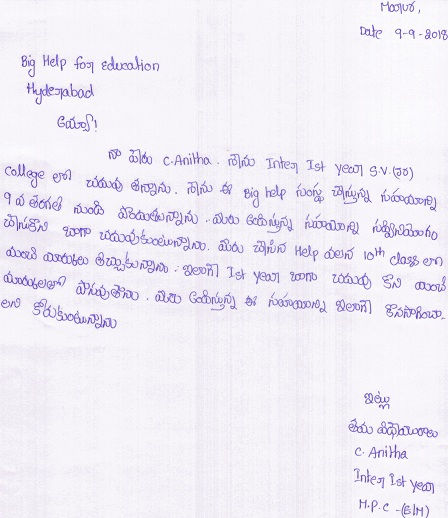 Date 9-9-2018
Big Help for Education
Hyderabad
అయ్యా!
నా పేరు C.Anitha. నేను Inter Ist year S.V. (jr)
College లో చదువు తున్నాను. నేను ఈ Big help సంస్థ చేస్తున్న సహాయాన్ని
9 వ తరగతి నుండి పొందుతున్నాను. మీరు అందిస్తున్న సహాయాన్ని సద్వినియోగం
చేసుకొని బాగా చదువుకుంటున్నాను. మీరు చేసిన Help వలన 10th class లో
మంచి మార్కులు తెచ్చుకున్నాను. ఇలాగే Ist year బాగా చదువు కొని మంచి
మార్కులతో పాసవుతాను. మీరు అందిస్తున్న ఈ సహాయాన్ని ఇలాగే కొనసాగించా-
లని కోరుకుంటున్నాను
ఇట్లు
తమ విధేయురాలు
C. Anitha
Inter Ist year
M.P.C -(E/M)